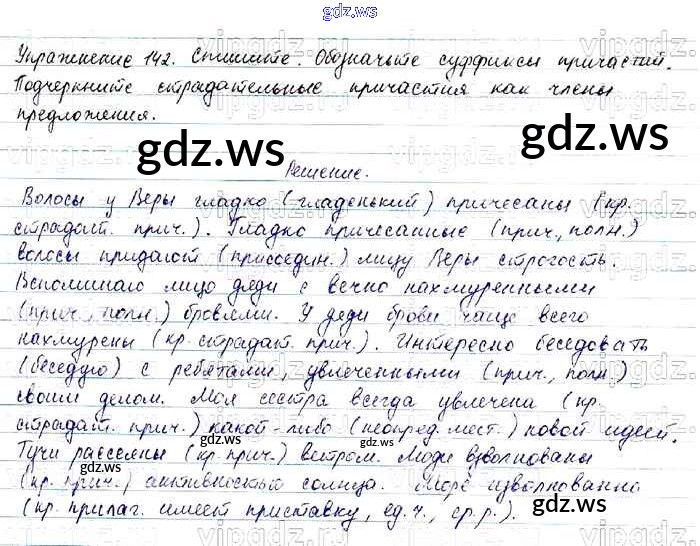 gdz.ws
Упражнение 142. Спишите. Обозначьте суффиксы причастий.
Подчеркните страдательные причастия как члены
предложения.
gdz.ws
gdz.ws
Решение.
Волосы у Веры гладко (гладенький) причесаны (кр.
страдат. прич.). Гладко причесанные (прич., полн.)
волосы придают (присоедин.) лицу Веры строгость.
Вспоминаю лицо дяди с вечно нахмуренными
(прич., полн.) бровями. У дяди брови чаще всего
нахмурены (кр. страдат. прич.). Интересно беседовать
(беседую) с ребятами, увлеченными (прич., полн.)
своим делом. Моя сестра всегда увлечена (кр.
страдат. прич.) какой-либо (неопред. мест.) новой идеей.
gdz.ws
gdz.ws
Тучи рассеяны (кр. прич.) ветром. Люди взволнованы
(кр. прич.) активностью солнца. Море взволнованно
(кр. прилаг. имеет приставку, ед. ч., ср. р.).
gdz.ws
gdz.ws